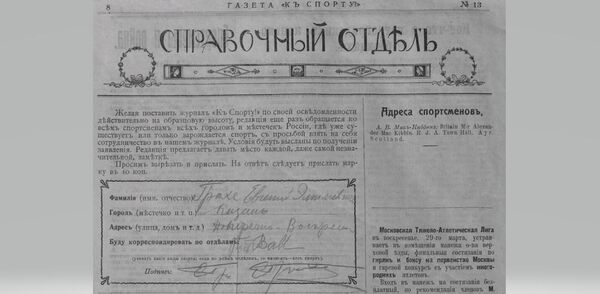 8
ГАЗЕТА «КЪ СПОРТУ!»
№ 13
СПРАВОЧНЫЙ ОТДѢЛЪ
Желая поставить журналъ «Къ Спорту!» по своей освѣдомленности
дѣйствительно на образцовую высоту, редакція еще разъ обращается ко
всѣмъ спортсменамъ всѣхъ городовъ и мѣстечекъ Россіи, гдѣ уже су-
ществуетъ или только зарождается спортъ, съ просьбой взять на себя
сотрудничество въ нашемъ журналѣ. Условія будутъ высланы по полученіи
заявленія. Редакція предлагаетъ давать мѣсто каждой, даже самой незна-
чительной, замѣткѣ.
Просимъ вырѣзать и прислать. На отвѣтъ слѣдуетъ прислать мар-
ку въ 10 коп.
Фамилія (имя, отчество)
Городъ (мѣстечко и т. п.) Казань
Адресъ (улица, домъ и т. д.)
Буду корреспондировать по отдѣламъ:
Подпись:
Адреса спортсменовъ,
Московская Тяжело-Атлетическая Лига
въ воскресенье, 29-го марта, устраи-
ваетъ въ помѣщеніи манежа о-ва вер-
ховой ѣзды, финальныя состязанія по
гирямъ и боксу на первенство Москвы
и гиревой конкурсъ съ участіемъ иного-
роднихъ атлетовъ.
Входъ въ манежъ на состязанія без-
платный, по рекомендаціи членовъ М.